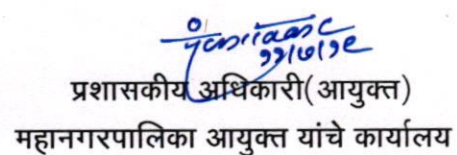 ११।७।१९
प्रशासकीय अधिकारी(आयुक्त)
महानगरपालिका आयुक्त यांचे कार्यालय